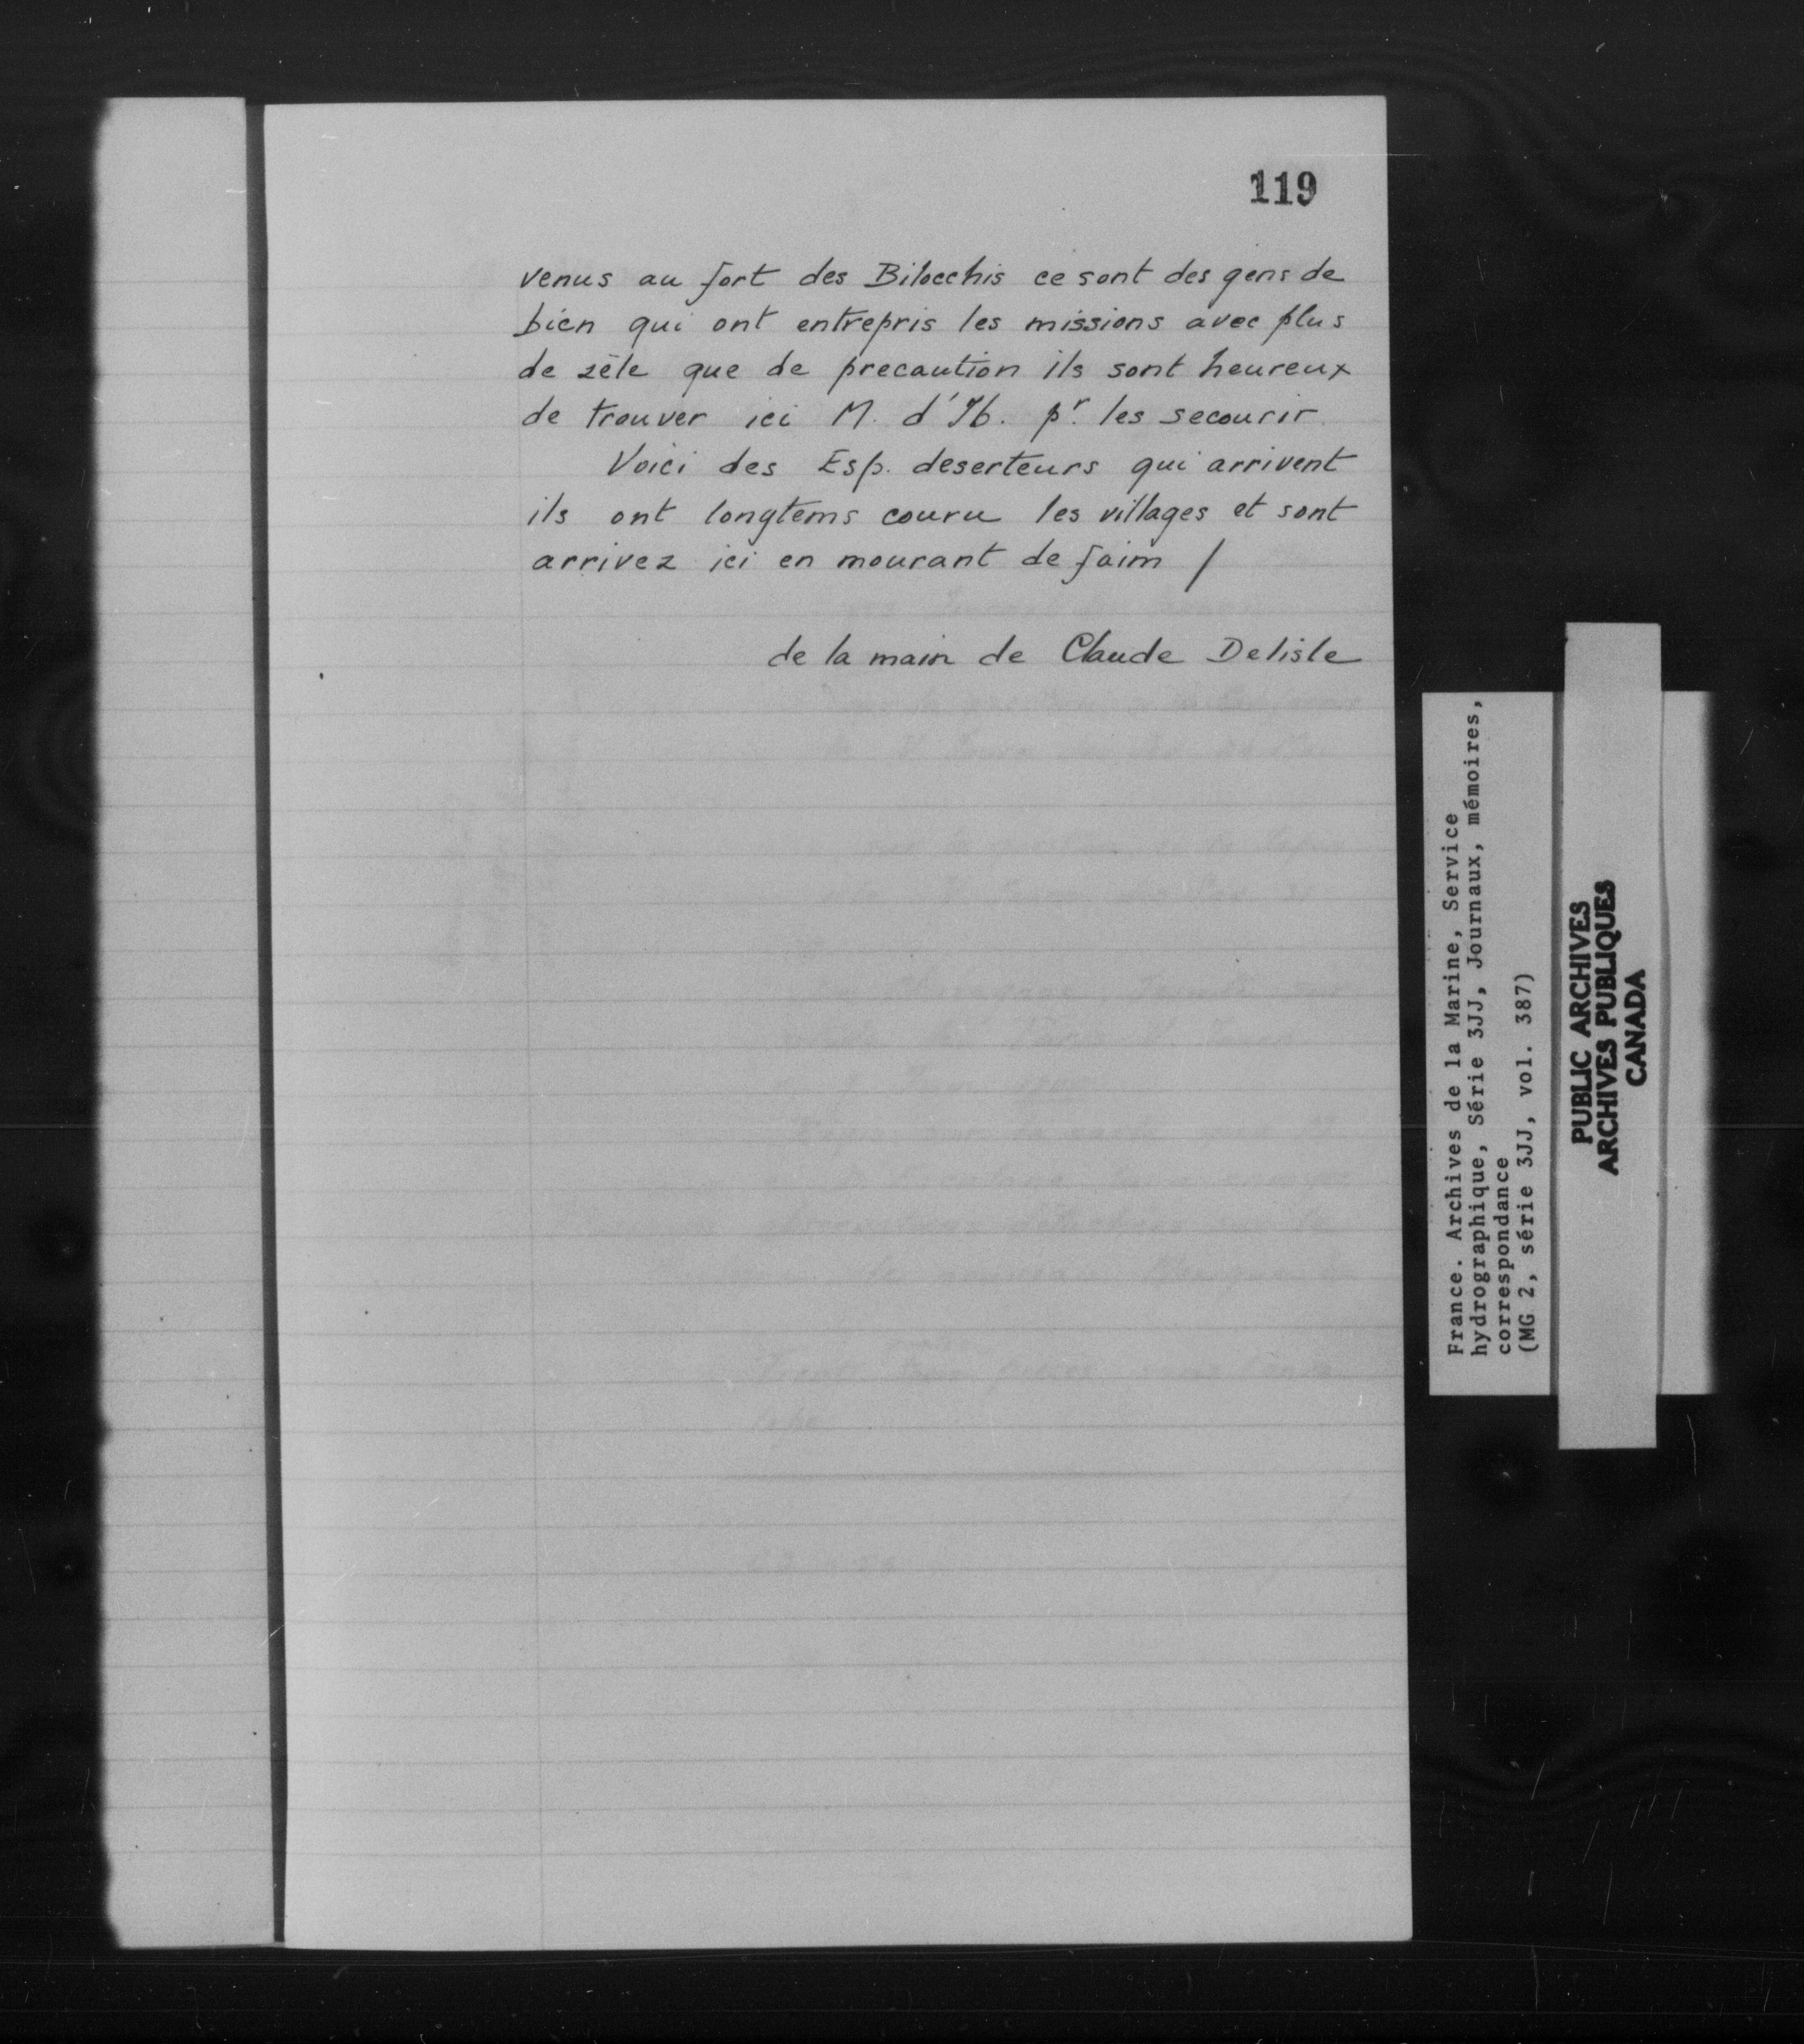 119
venus au fort des Bilocchis ce sont des gens de
bien qui ont entrepris les missions avec plus
de zèle que de precaution ils sont heureux
de trouver ici M. d'Ib. pr. les secourir
Voici des Esp. deserteurs qui arrivent
ils ont longtems couru les villages et sont
arrivez ici en mourant de faim /
de la main de Claude Delisle
France. Archives de la Marine, Service
hydrographique, Série 3JJ, Journaux, mémoires,
correspondance
(MG 2, série 3JJ, vol. 387)
PUBLIC ARCHIVES
ARCHIVES PUBLIQUES
CANADA